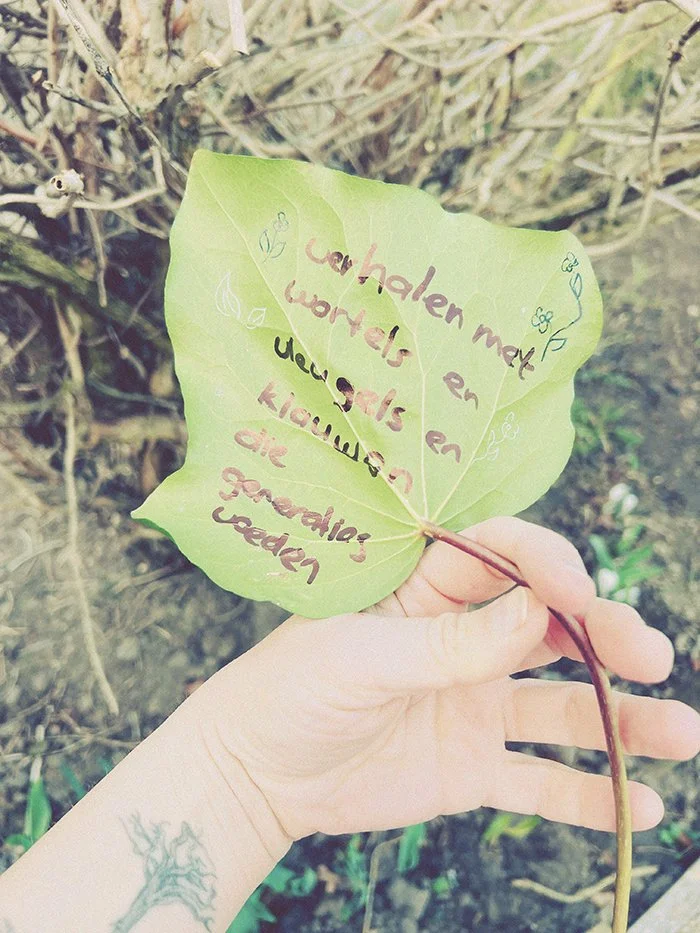 verhalen met
wortels en
vleugels en
klauwen
die
generaties
voeden